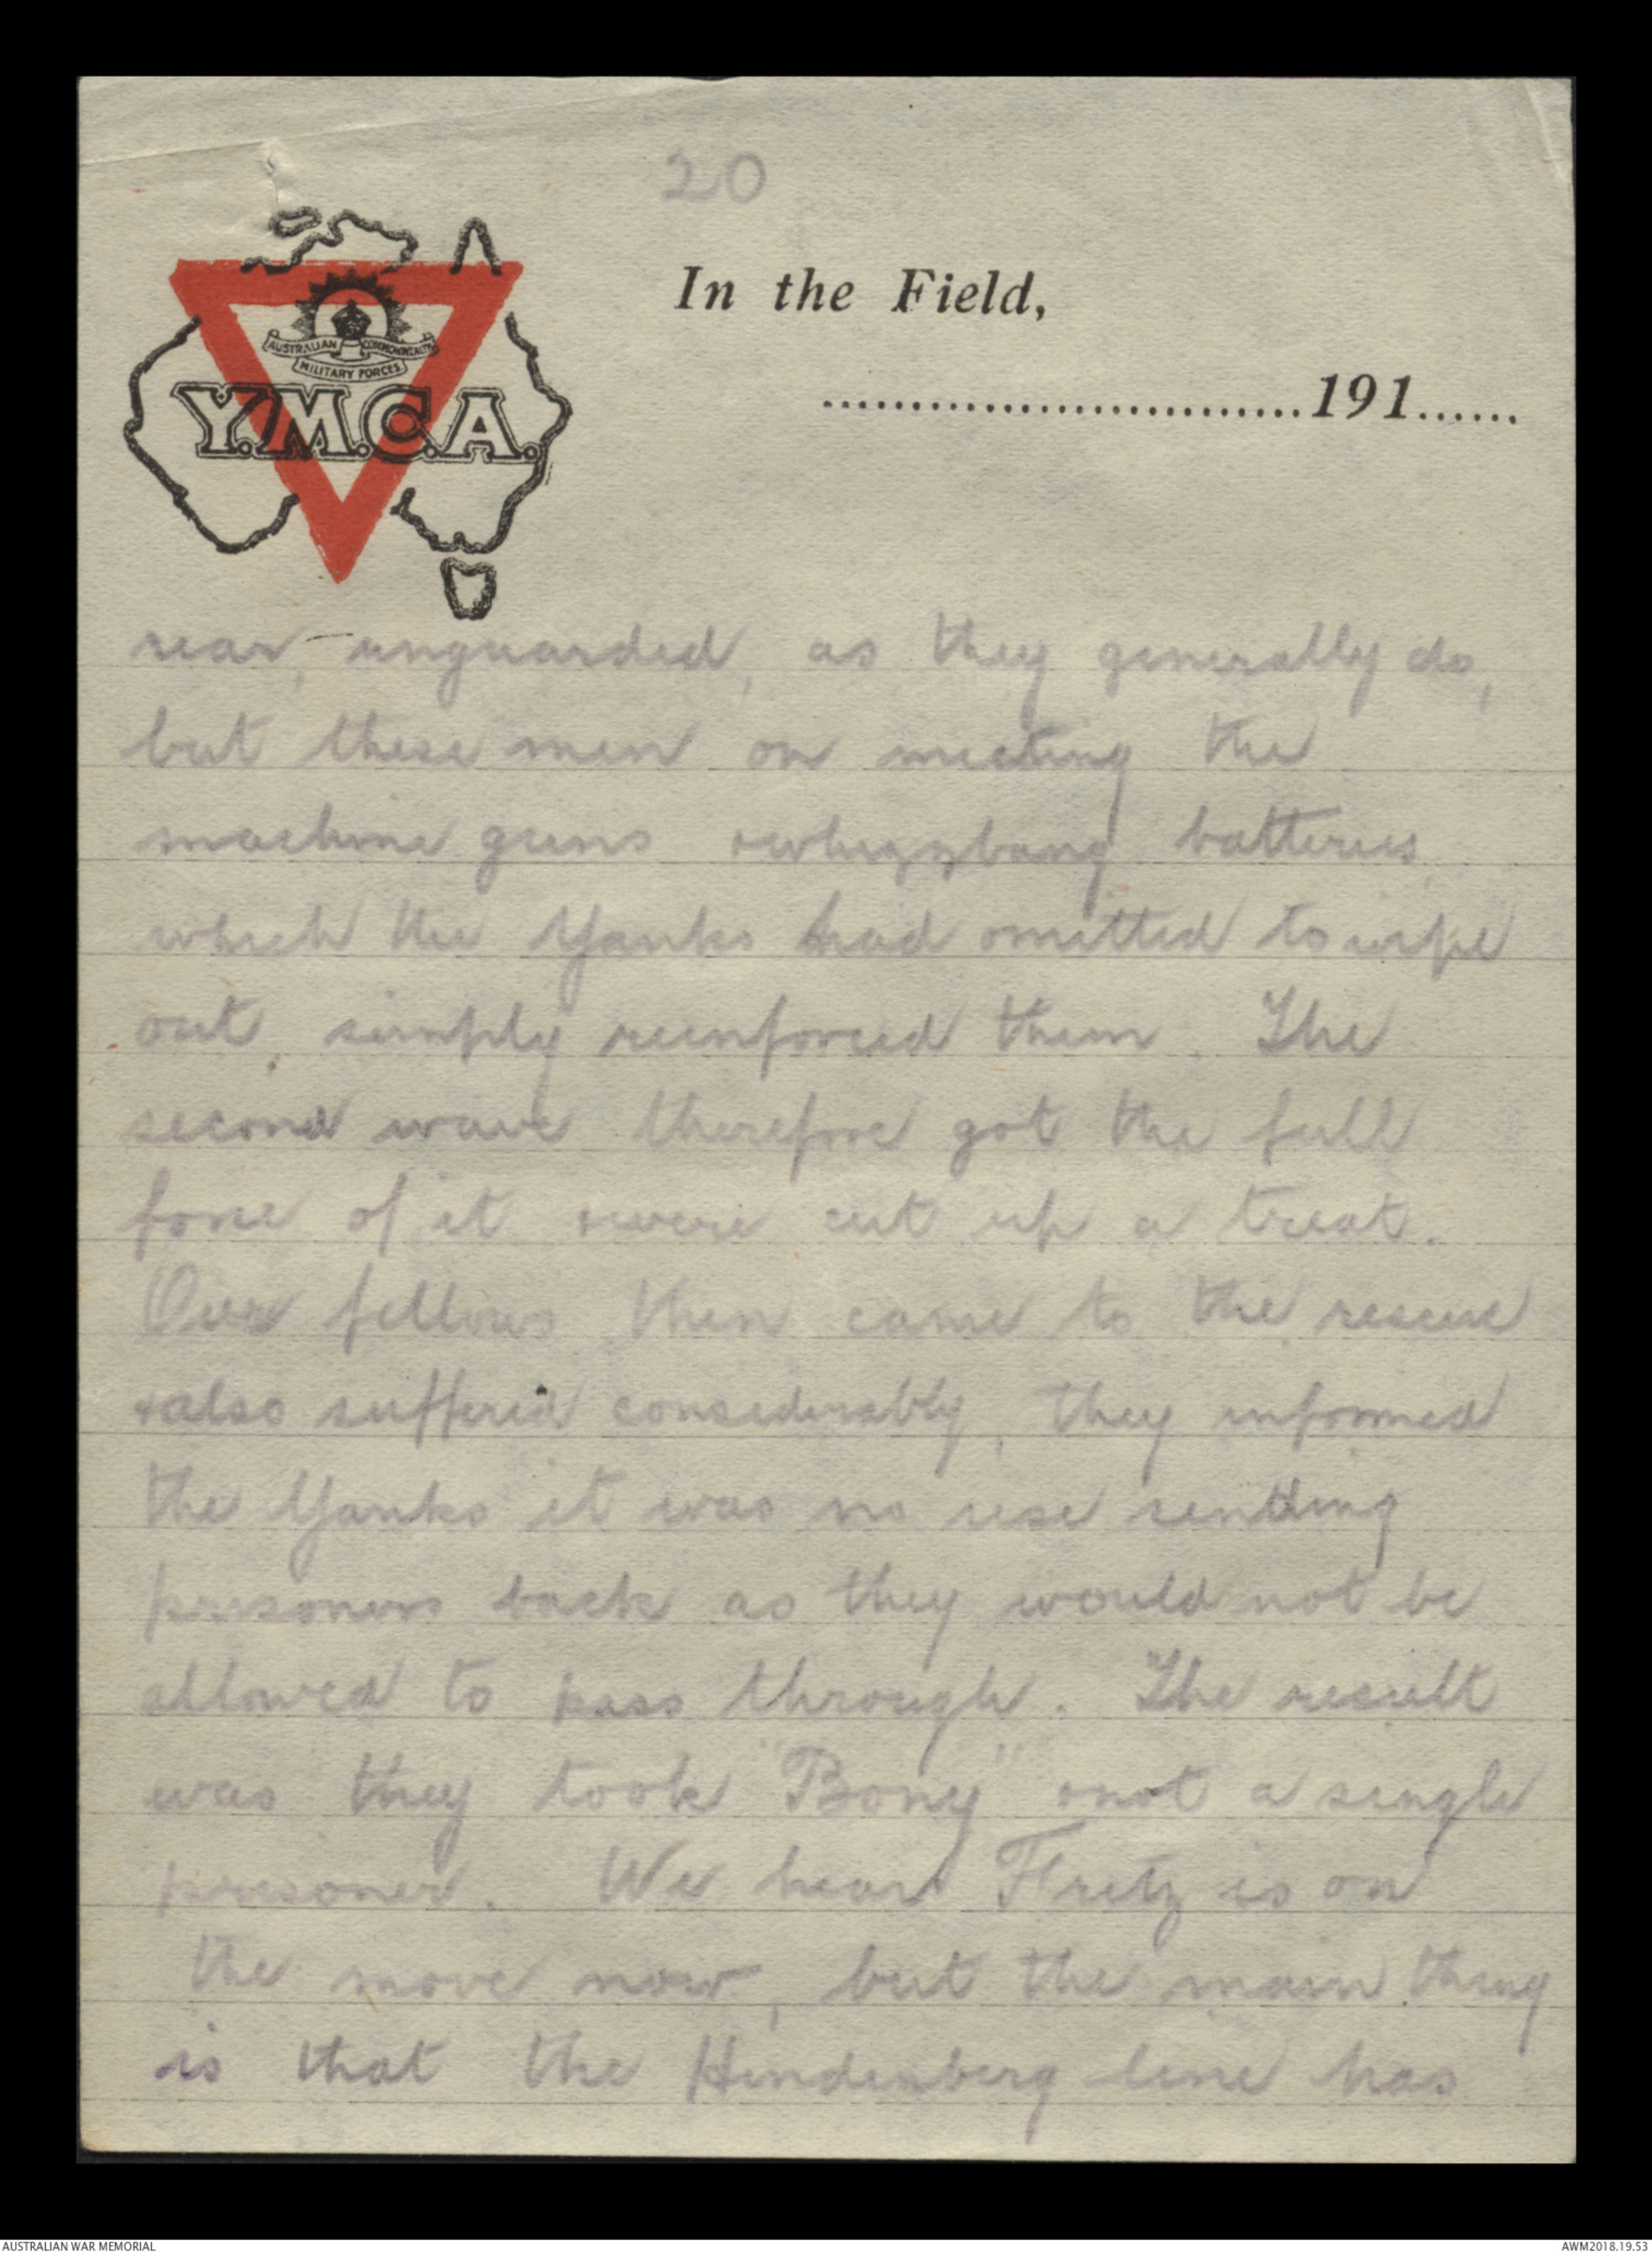 20
In the Field,
AUSTRALIAN COMMONWEALTH
MILITARY FORCES
Y.M.C.A.
............................191......
rear, unguarded, as they generally do,
but these men on meeting the
machine guns & whizzbang batteries
which the Yanks had omitted to wipe
out, simply reinforced them. The
second wave therefore got the full
force of it & were cut up a treat.
Our fellows then came to the rescue
& also suffered considerably, they informed
the Yanks it was no use sending
prisoners back as they would not be
allowed to pass through. The result
was they took "Bony" & not a single
prisoner. We hear Fritz is on
the move now, but the main thing
is that the Hindenberg line has
AUSTRALIAN WAR MEMORIAL
AWM2018.19.53